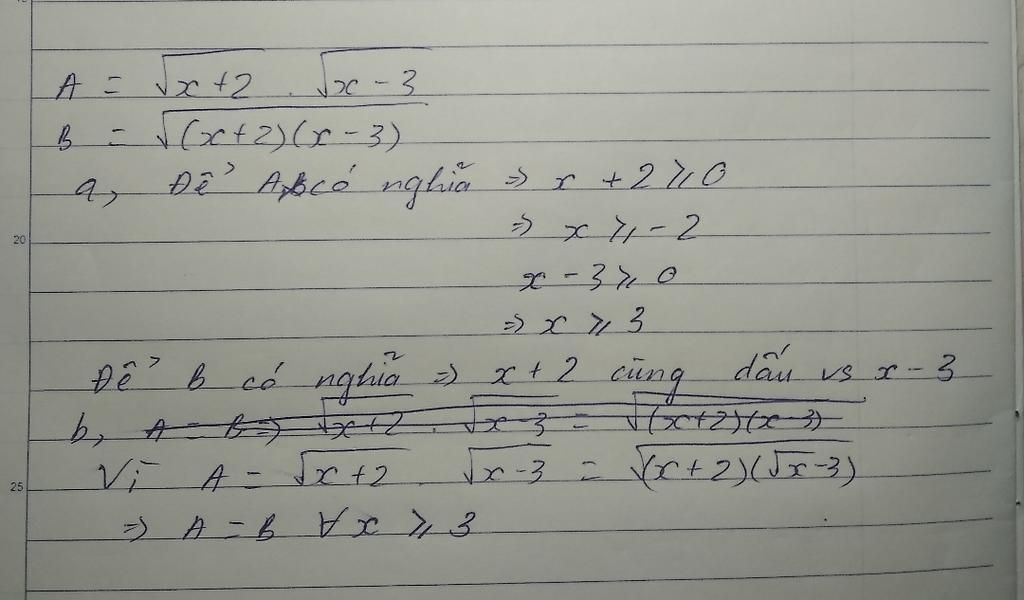 A = √x+2 . √x-3
B = √(x+2)(x-3)
a, Để A có nghĩa => x + 2 ⩾ 0
=> x ⩾ -2
x - 3 ⩾ 0
=> x ⩾ 3
20
Để B có nghĩa => x + 2 cùng dấu vs x - 3
b, A = B => √x+2 . √x-3 = √(x+2)(x-3)
Vì A = √x+2 . √x-3 = √(x+2)(√x-3)
25
=> A = B ∀x ⩾ 3